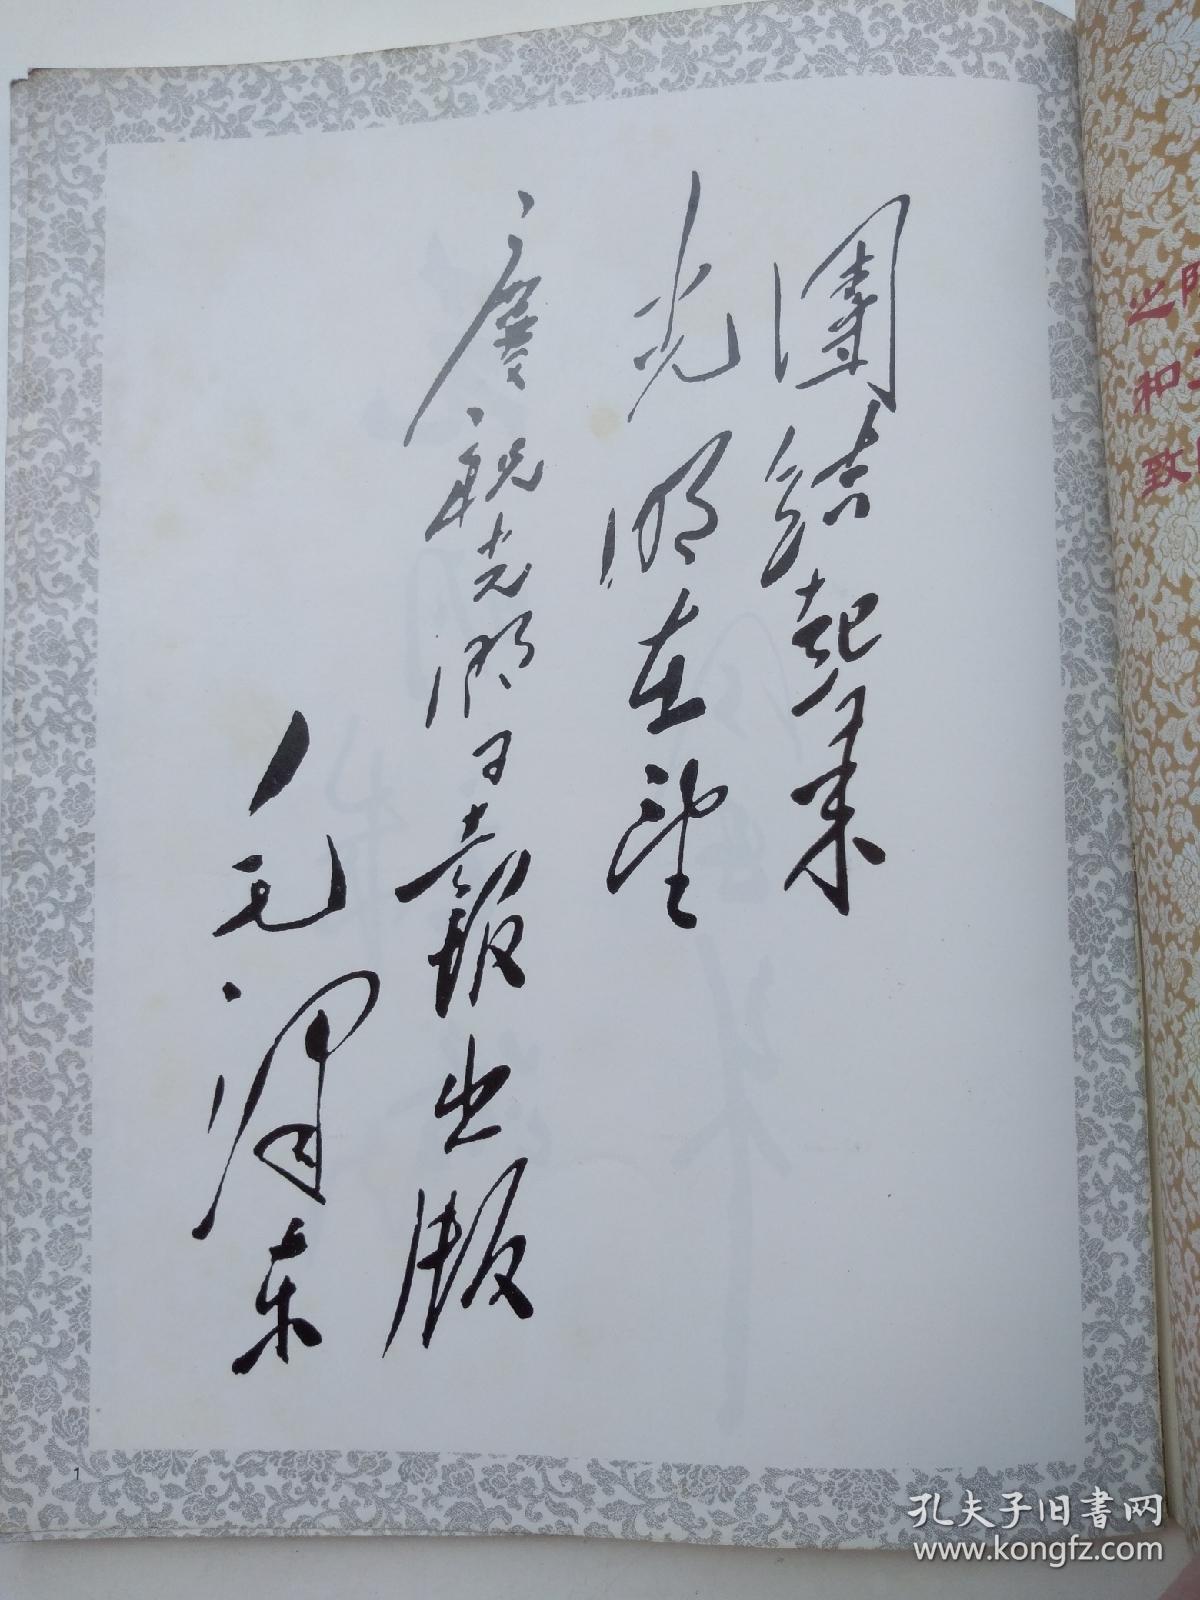 團結起来
光明在望
慶祝光明日報出版
毛泽东
1
之
和
致
孔夫子旧书网
www.kongfz.com